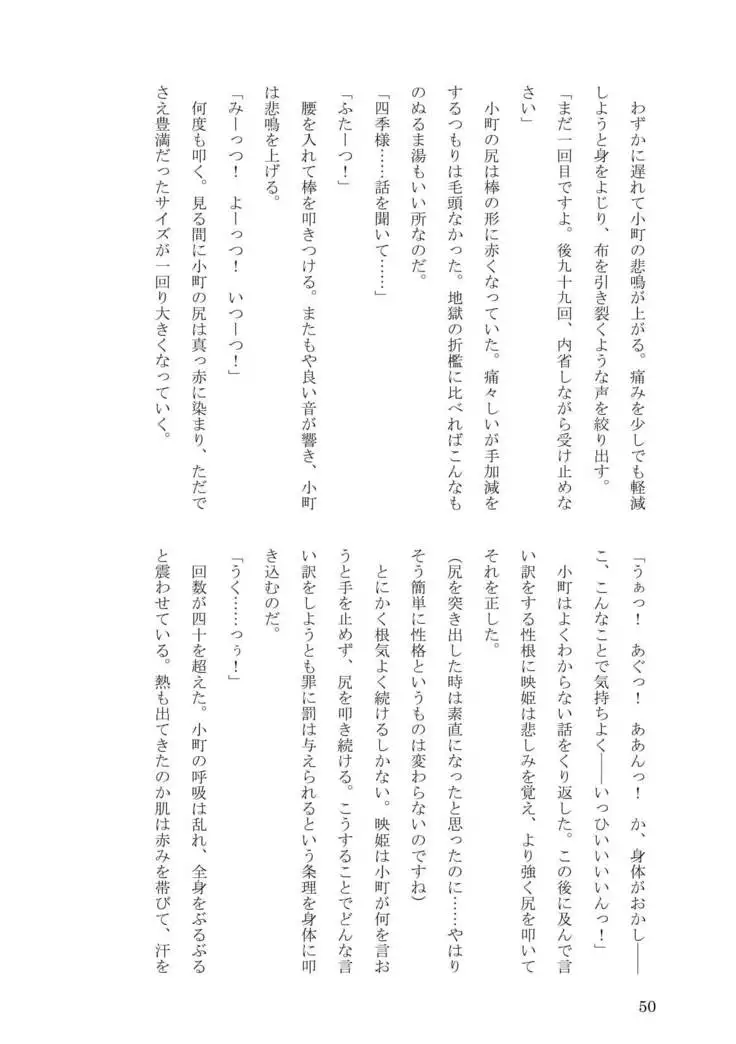 わずかに遅れて小町の悲鳴が上がる。痛みを少しでも軽減
しようと身をよじり、布を引き裂くような声を絞り出す。
「まだ一回目ですよ。後九十九回、内省しながら受け止めな
さい」
　小町の尻は棒の形に赤くなっていた。痛々しいが手加減を
するつもりは毛頭なかった。地獄の折檻に比べればこんなも
のぬるま湯もいい所なのだ。
「四季様……話を聞いて……」
「ふたーつ！」
　腰を入れて棒を叩きつける。またもや良い音が響き、小町
は悲鳴を上げる。
「みーっつ！　よーっつ！　いつーつ！」
　何度も叩く。見る間に小町の尻は真っ赤に染まり、ただで
さえ豊満だったサイズが一回り大きくなっていく。
「うぁっ！　あぐっ！　ああんっ！　か、身体がおかし――
こ、こんなことで気持ちよく――いっひいいいいんっ！」
　小町はよくわからない話をくり返した。この後に及んで言
い訳をする性根に映姫は悲しみを覚え、より強く尻を叩いて
それを正した。
（尻を突き出した時は素直になったと思ったのに……やはり
そう簡単に性格というものは変わらないのですね）
　とにかく根気よく続けるしかない。映姫は小町が何を言お
うと手を止めず、尻を叩き続ける。こうすることでどんな言
い訳をしようとも罪に罰は与えられるという条理を身体に叩
き込むのだ。
「うく……っぅ！」
　回数が四十を超えた。小町の呼吸は乱れ、全身をぶるぶる
と震わせている。熱も出てきたのか肌は赤みを帯びて、汗を
50